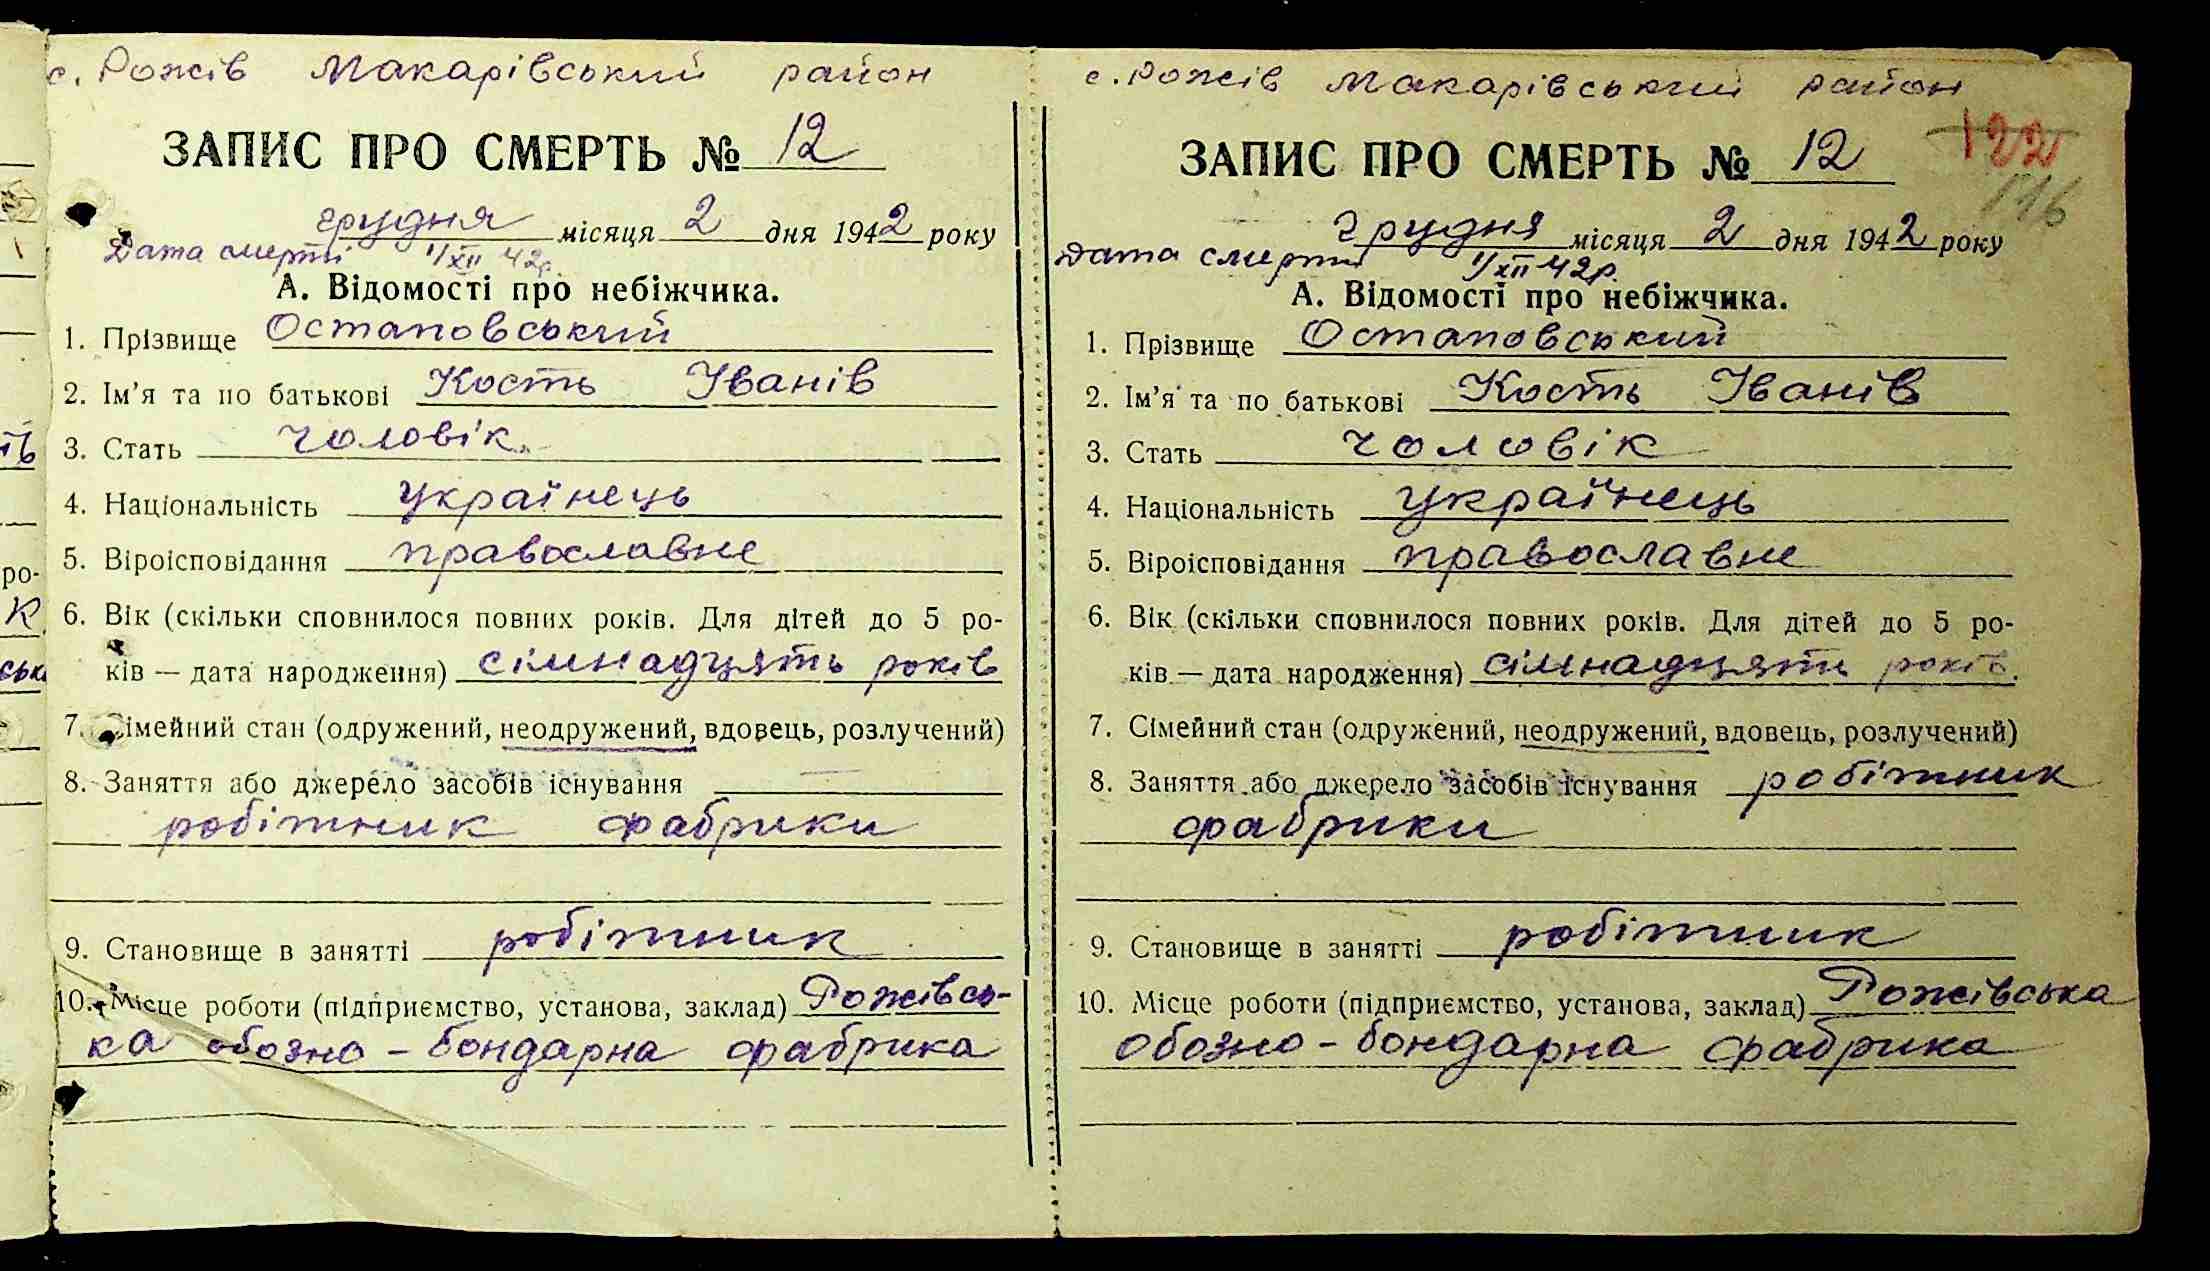 с. Рожів Макарівський район
ЗАПИС ПРО СМЕРТЬ № 12
грудня місяця 2 дня 1942 року
Дата смерті 1/XII 42р.
А. Відомості про небіжчика.
1. Прізвище Остаповський
2. Ім'я та по батькові Кость Іванів
3. Стать чоловік
4. Національність українець
5. Віроісповідання православне
6. Вік (скільки сповнилося повних років. Для дітей до 5 ро-
ків — дата народження) сімнадцять років
7. Сімейний стан (одружений, неодружений, вдовець, розлучений)
8. Заняття або джерело засобів існування
робітник фабрики
9. Становище в занятті робітник
10. Місце роботи (підприємство, установа, заклад) Рожівсь-
ка обозно - бондарна фабрика
с. Рожів Макарівський район
122
ЗАПИС ПРО СМЕРТЬ № 12
116
грудня місяця 2 дня 1942 року
Дата смерти 1/XII 42р.
А. Відомості про небіжчика.
1. Прізвище Остаповський
2. Ім'я та по батькові Кость Іванів
3. Стать чоловік
4. Національність українець
5. Віроісповідання православне
6. Вік (скільки сповнилося повних років. Для дітей до 5 ро-
ків — дата народження) сімнадцять років.
7. Сімейний стан (одружений, неодружений, вдовець, розлучений)
8. Заняття або джерело засобів існування робітник
фабрики
9. Становище в занятті робітник
10. Місце роботи (підприємство, установа, заклад) Рожівська
обозно - бондарна фабрика